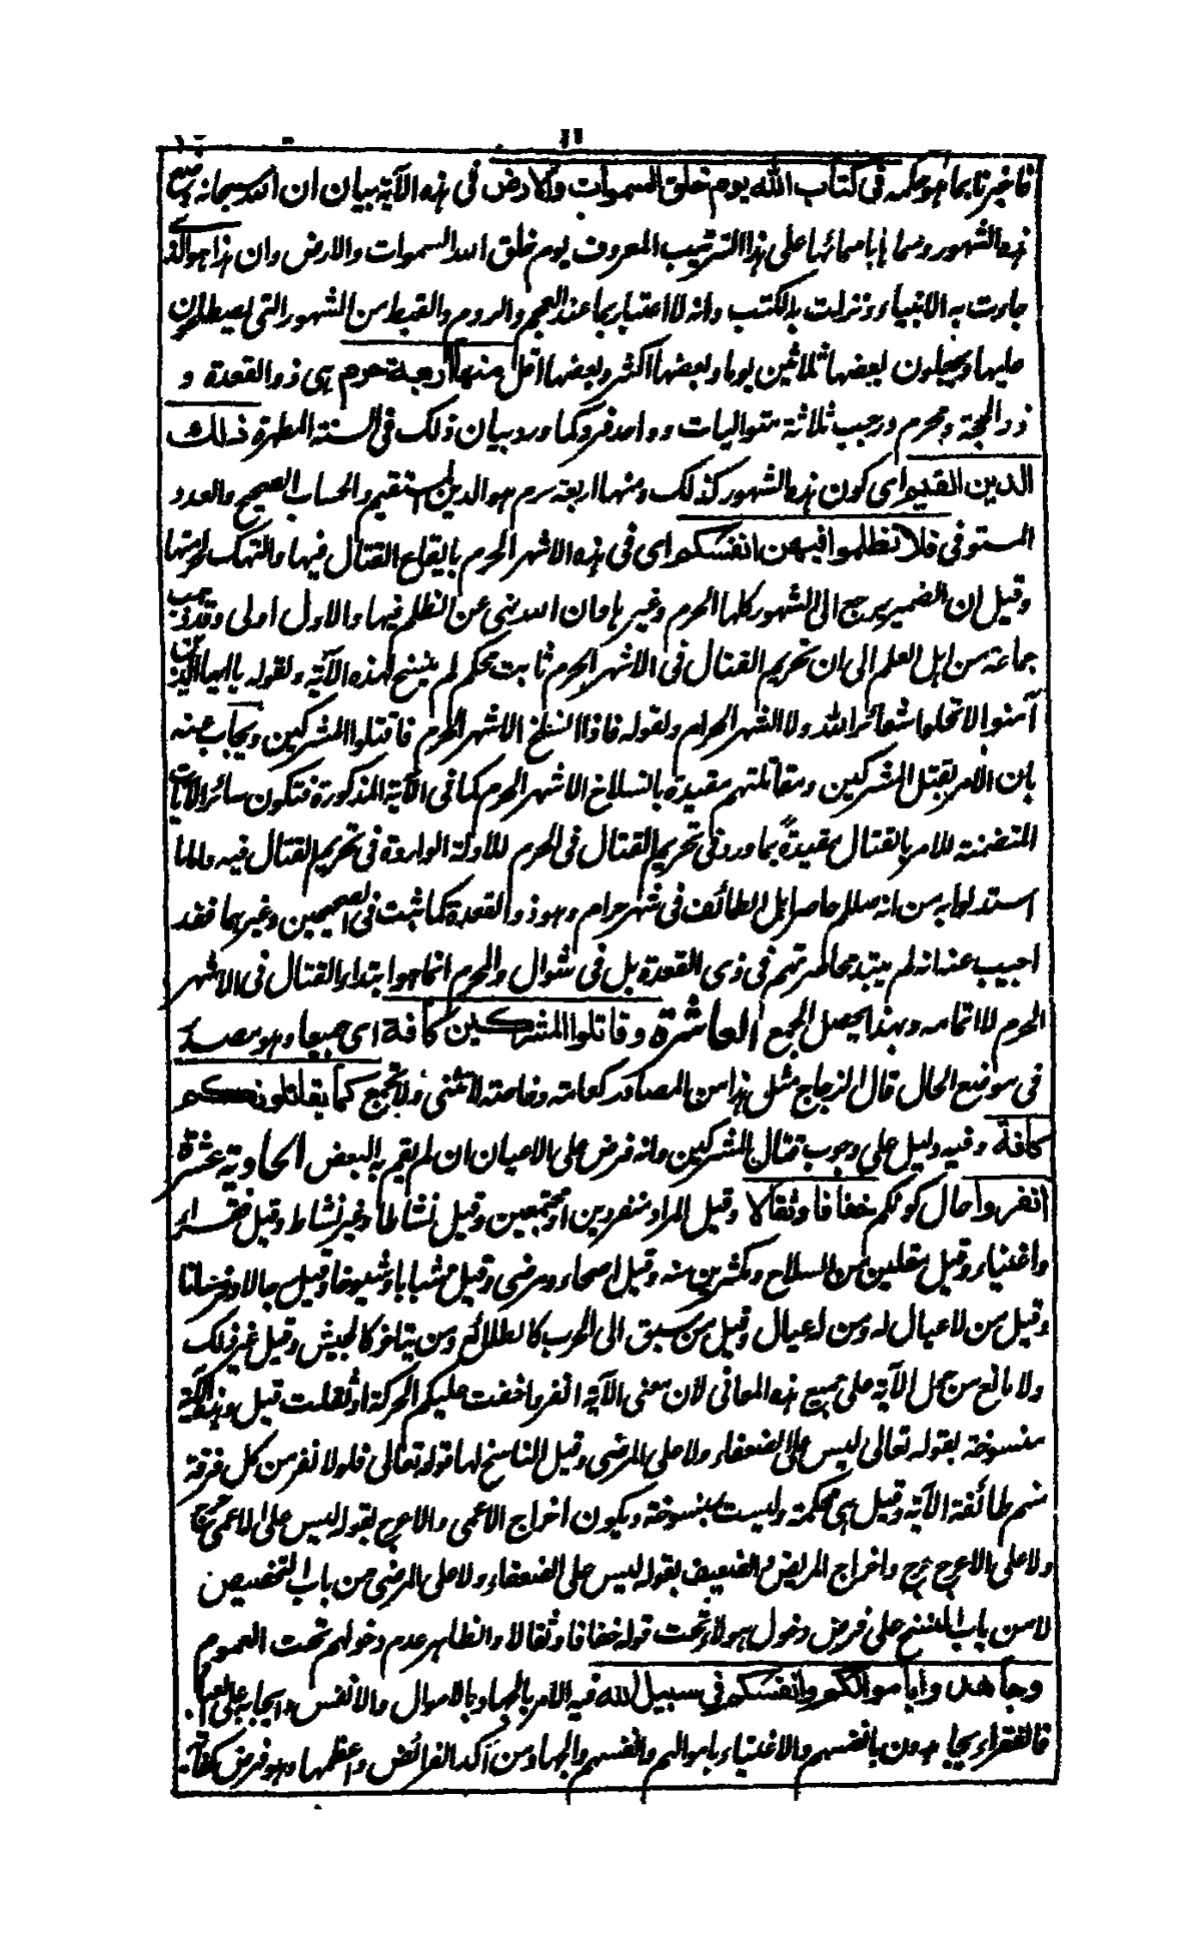 فاخبرنا بما هو حكمه فى كتاب الله يوم خلق السموات والارض فى هذه الآية بيان ان الله سبحانه وضع
هذه الشهور وسماها باسمائها على هذا الترتيب المعروف يوم خلق الله السموات والارض وان هذا هو الذى
جاءت به الانبياء ونزلت به الكتب وانه لا اعتبار بما عند العجم والروم والقبط من الشهور التى يصطلحون
عليها ويجعلون بعضها ثلاثين يوما وبعضها اكثر وبعضها اقل منها اربعة حرم هى ذو القعدة و
ذو الحجة ومحرم ورجب ثلاثة متواليات وواحد فرد كما ورد بيان ذلك فى السنة المطهرة ذلك
الدين القيم اى كون هذه الشهور كذلك ومنها اربعة حرم هو الدين المستقيم والحساب الصحيح والعدد
المستوفى فلا تظلموا فيهن انفسكم اى فى هذه الاشهر الحرم بايقاع القتال فيها والهتك لحرمتها
وقيل ان الضمير يرجع الى الشهور كلها الحرم وغيرها وان الله نهى عن الظلم فيها والاول اولى وقد ذهب
جماعة من اهل العلم الى ان تحريم القتال فى الاشهر الحرم ثابت محكم لم ينسخ لهذه الآية ولقوله يا ايها الذين
آمنوا لا تحلوا شعائر الله ولا الشهر الحرام ولقوله فاذا انسلخ الاشهر الحرم فاقتلوا المشركين ويجاب عنه
بان الامر بقتل المشركين ومقاتلتهم مقيدة بانسلاخ الاشهر الحرم كما فى الآية المذكورة فتكون سائر الآيات
المتضمنة للامر بالقتال مقيدة بما ورد فى تحريم القتال فى الحرم للادلة الواردة فى تحريم القتال فيه واما ما
استدلوا به من انه صللم حاصر اهل الطائف فى شهر حرام وهو ذو القعدة كما ثبت فى الصحيحين وغيرهما فقد
اجيب عنه انه لم يبتد محاصرتهم فى ذى القعدة بل فى شوال والمحرم انما هو ابتداء القتال فى الاشهر
الحرم لا اتمامه وبهذا يحصل الجمع العاشرة وقاتلوا المشركين كافة اى جميعا وهو مصدر
فى موضع الحال قال الزجاج مثل هذا من المصادر كعامة وخاصة لا تثنى ولا تجمع كما يقاتلونكم
كافة وفيه دليل على وجوب قتال المشركين وانه فرض على الاعيان ان لم يقم به البعض الحادية عشرة
انفروا حال كونكم خفافا وثقالا وقيل المراد منفردين او مجتمعين وقيل نشاطا وغير نشاط وقيل فقراء
واغنياء وقيل مقلين من السلاح ومكثرين منه وقيل اصحاء ومرضى وقيل شبابا وشيوخا وقيل رجالا وفرسانا
وقيل من لا عيال له ومن له عيال وقيل من سبق الى الحرب كالطلائع ومن يتاخر كالجيش وقيل غير ذلك
ولا مانع من حمل الآية على جميع هذه المعانى لان معنى الآية انفروا خفت عليكم الحركة او ثقلت قيل وهذه الآية
منسوخة بقوله تعالى ليس على الضعفاء ولا على المرضى وقيل الناسخ لها قوله تعالى فلولا نفر من كل فرقة
منهم طائفة الآية وقيل هى محكمة وليست بمنسوخة ويكون اخراج الاعمى والاعرج بقوله ليس على الاعمى حرج
ولا على الاعرج حرج واخراج المريض والضعيف بقوله ليس على الضعفاء ولا على المرضى من باب التخصيص
لا من باب النسخ على فرض دخول هؤلاء تحت قوله خفافا وثقالا والظاهر عدم دخولهم تحت العموم
وجاهدوا باموالكم وانفسكم فى سبيل الله فيه الامر بالجهاد بالاموال والانفس وايجابه على العباد
فالفقراء يجاهدون بانفسهم والاغنياء باموالهم وانفسهم والجهاد من آكد الفرائض واعظمها وهو فرض كفاية